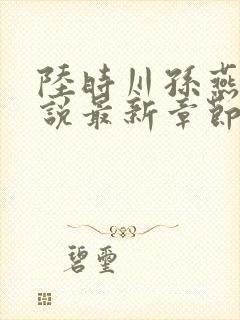 陸時川孫燕
說最新章節
碧璽